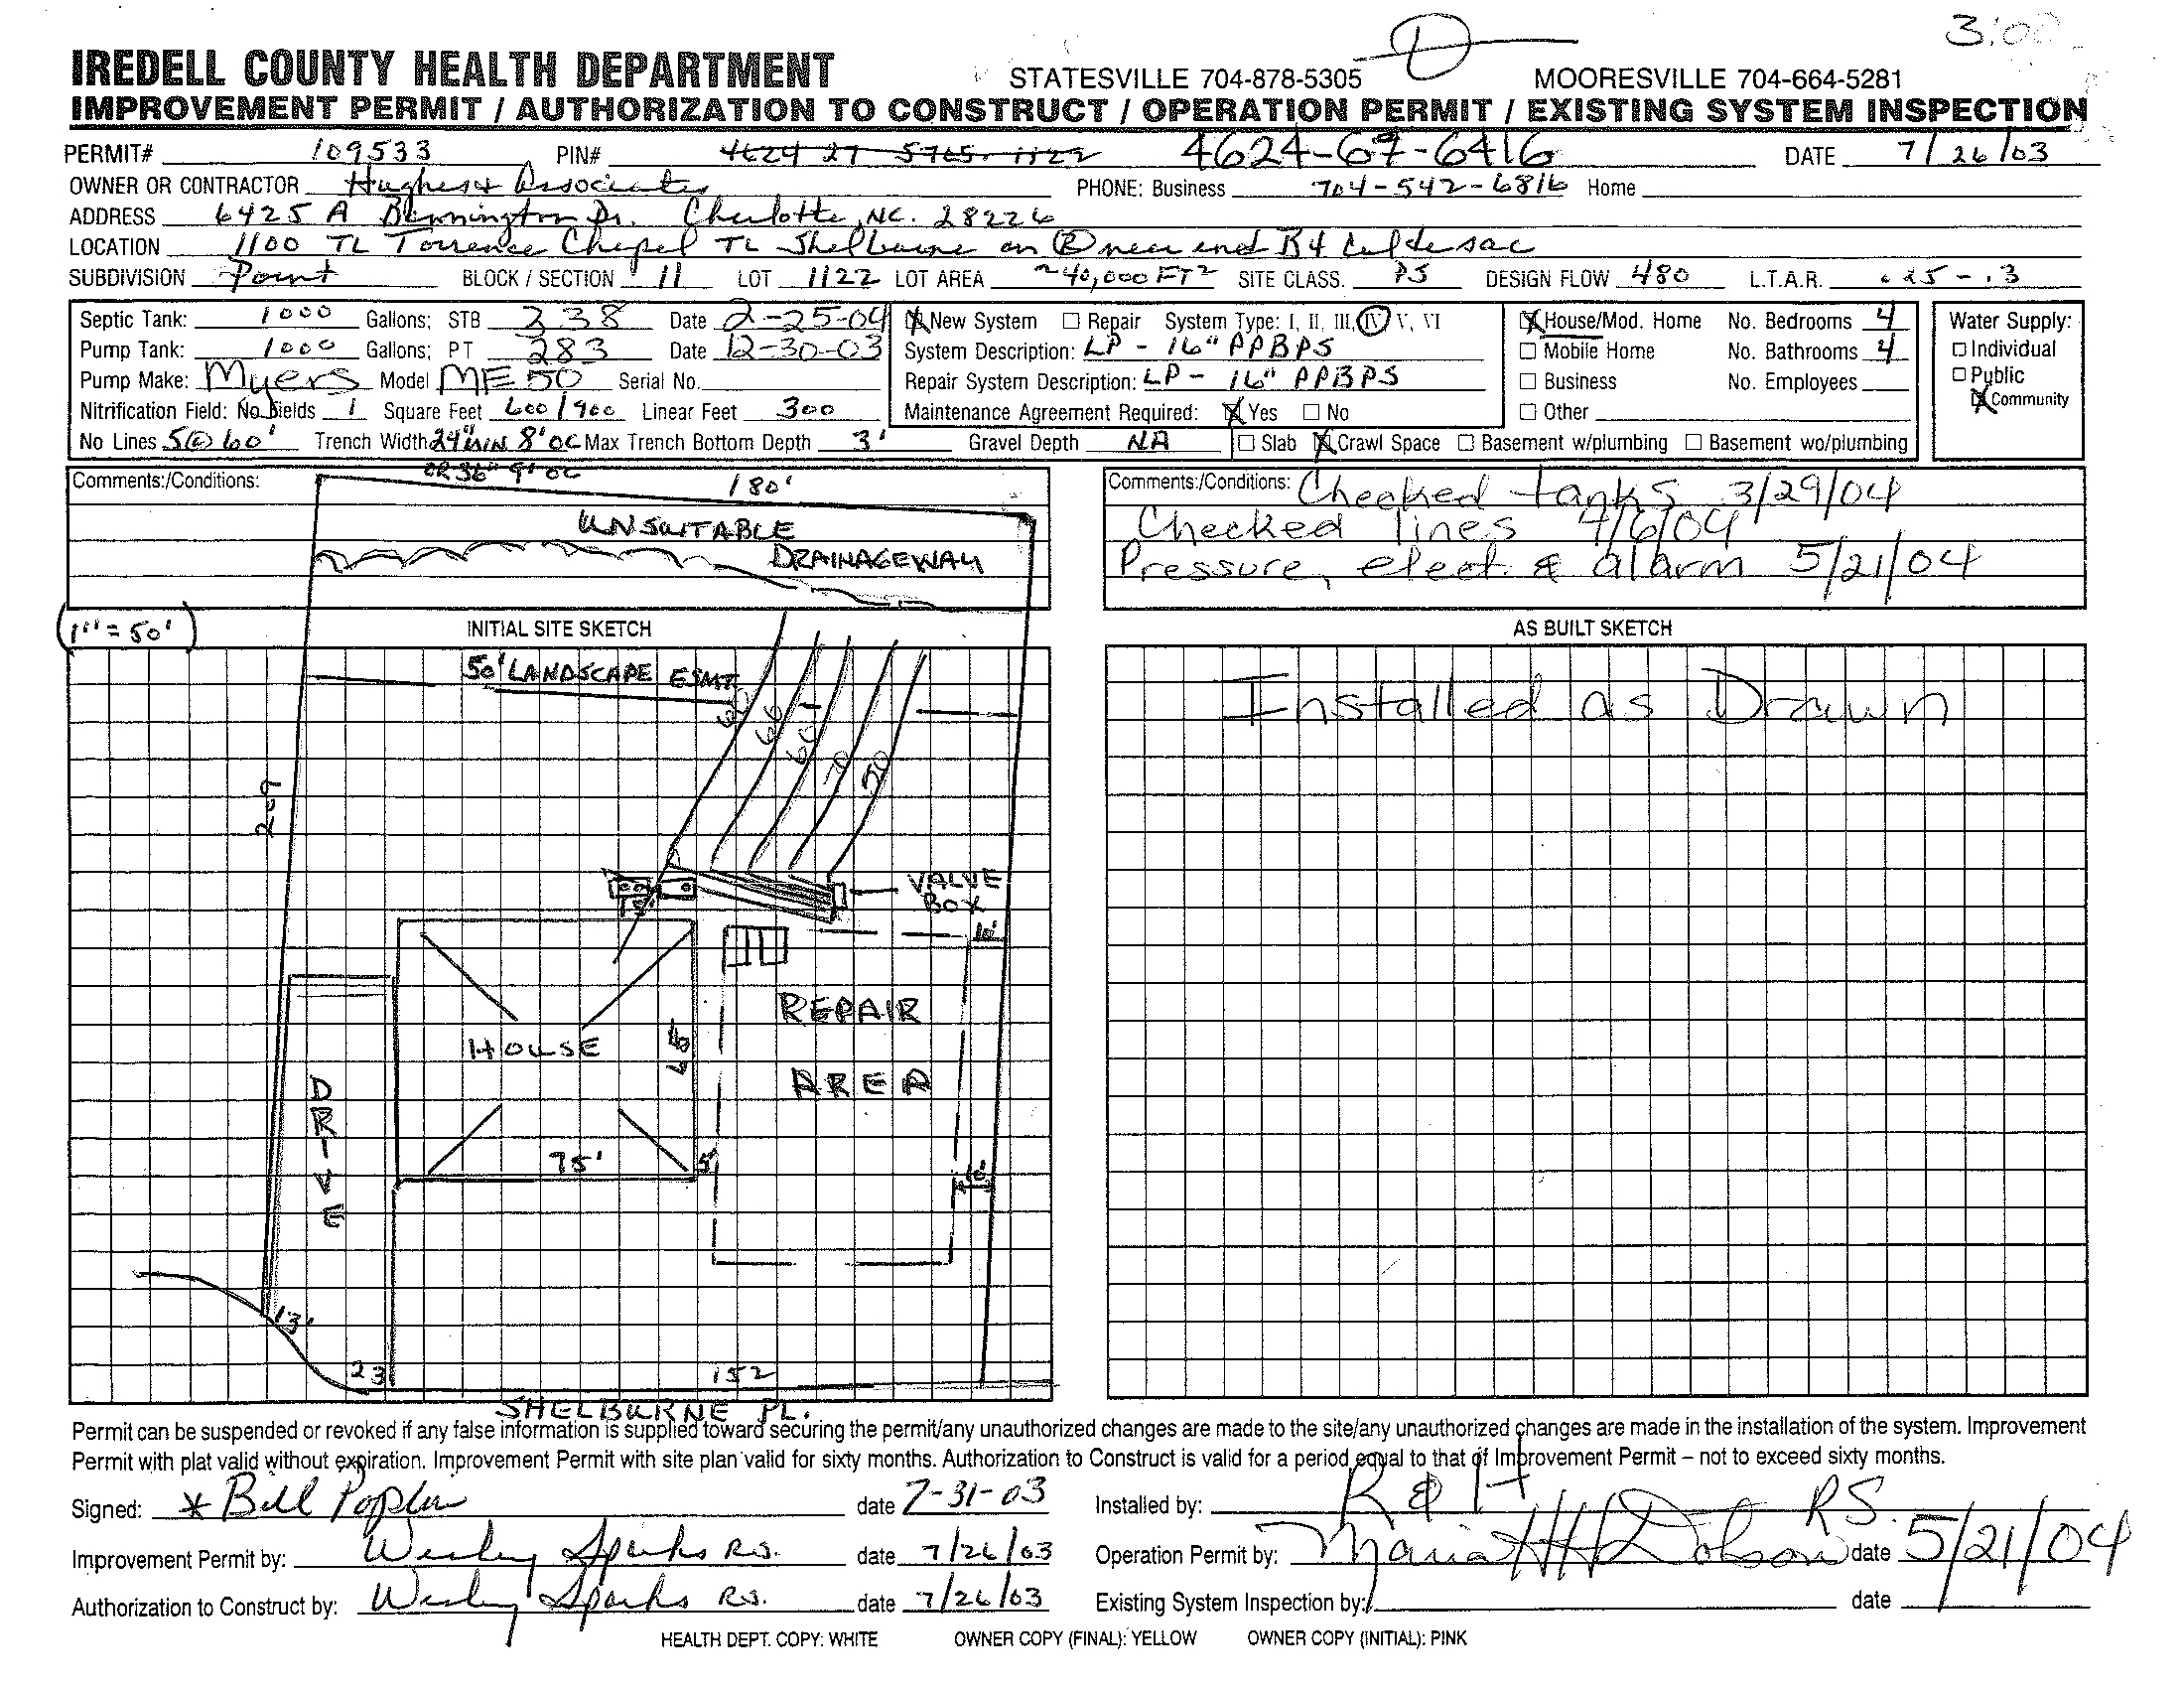 3:00
IREDELL COUNTY HEALTH DEPARTMENT STATESVILLE 704-878-5305 MOORESVILLE 704-664-5281
IMPROVEMENT PERMIT / AUTHORIZATION TO CONSTRUCT / OPERATION PERMIT / EXISTING SYSTEM INSPECTION
PERMIT# 109533 PIN# 4624-67-6416 DATE 7/26/03
OWNER OR CONTRACTOR Hughes & Associates PHONE: Business 704-542-6816 Home
ADDRESS 6425 A Bennington Dr. Charlotte, NC. 28226
LOCATION 1100 TL Torrence Chapel TL Shelburne on R near end B4 Culdesac
SUBDIVISION Point BLOCK / SECTION 11 LOT 1122 LOT AREA ~40,000 FT² SITE CLASS. PS DESIGN FLOW 480 L.T.A.R. .25-.3
Septic Tank: 1000 Gallons; STB 238 Date 2-25-04 X New System Repair System Type: I, II, III, IV, V, VI X House/Mod. Home No. Bedrooms 4 Water Supply:
Pump Tank: 1000 Gallons; PT 283 Date 12-30-03 System Description: LP - 16" PPBPS Mobile Home No. Bathrooms 4 Individual
Pump Make: Myers Model ME50 Serial No. Repair System Description: LP - 16" PPBPS Business No. Employees Public
Nitrification Field: No. Fields 1 Square Feet 600/900 Linear Feet 300 Maintenance Agreement Required: X Yes No Other X Community
No Lines 5@60' Trench Width 24" MIN 8' OC Max Trench Bottom Depth 3' Gravel Depth NA Slab X Crawl Space Basement w/plumbing Basement wo/plumbing
OR 36" 9' OC
Comments:/Conditions: 180' Comments:/Conditions: Checked tanks 3/29/04
UNSUITABLE Checked lines 4/6/04
DRAINAGEWAY Pressure, elect. & alarm 5/21/04
(1"=50') INITIAL SITE SKETCH AS BUILT SKETCH
50' LANDSCAPE ESMT. Installed as Drawn
60 60 60 70 50
209
VALVE
BOX
15'
10'
REPAIR
HOUSE
AREA
DRIVE
75' 5'
10'
13'
23 152
SHELBURNE PL.
Permit can be suspended or revoked if any false information is supplied toward securing the permit/any unauthorized changes are made to the site/any unauthorized changes are made in the installation of the system. Improvement
Permit with plat valid without expiration. Improvement Permit with site plan valid for sixty months. Authorization to Construct is valid for a period equal to that of Improvement Permit – not to exceed sixty months.
Signed: * Bill Poplin date 7-31-03 Installed by: R & H
Improvement Permit by: Wesley Sparks R.S. date 7/26/03 Operation Permit by: Maria H Dobson RS. date 5/21/04
Authorization to Construct by: Wesley Sparks R.S. date 7/26/03 Existing System Inspection by: date
HEALTH DEPT. COPY: WHITE OWNER COPY (FINAL): YELLOW OWNER COPY (INITIAL): PINK